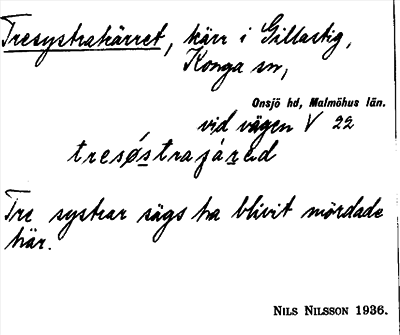 Tresystrakärret, kärr i Gillastig,
Konga sn,
Onsjö hd, Malmöhus län.
vid vägen V 22
Tre systrar sägs ha blivit mördade
här.
NILS NILSSON 1936.